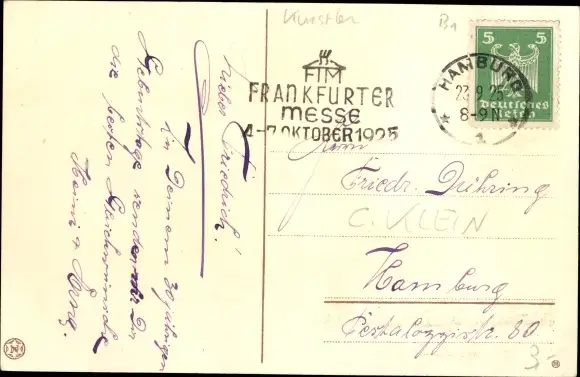 Künstler
FIM
FRANKFURTER
MESSE
4-7. OKTOBER 1925
5 5
Deutsches
Reich
HAMBURG
23.9.25
8-9 N
* 1 *
Lieber Friedrich!
Zu Deinem 30 jährigen
Geburtstage senden wir Dir
die besten Glückwünsche
Heini &
Herrn
Friedr. Dühring
C. KLEIN
Hamburg
Pestalozzistr. 80